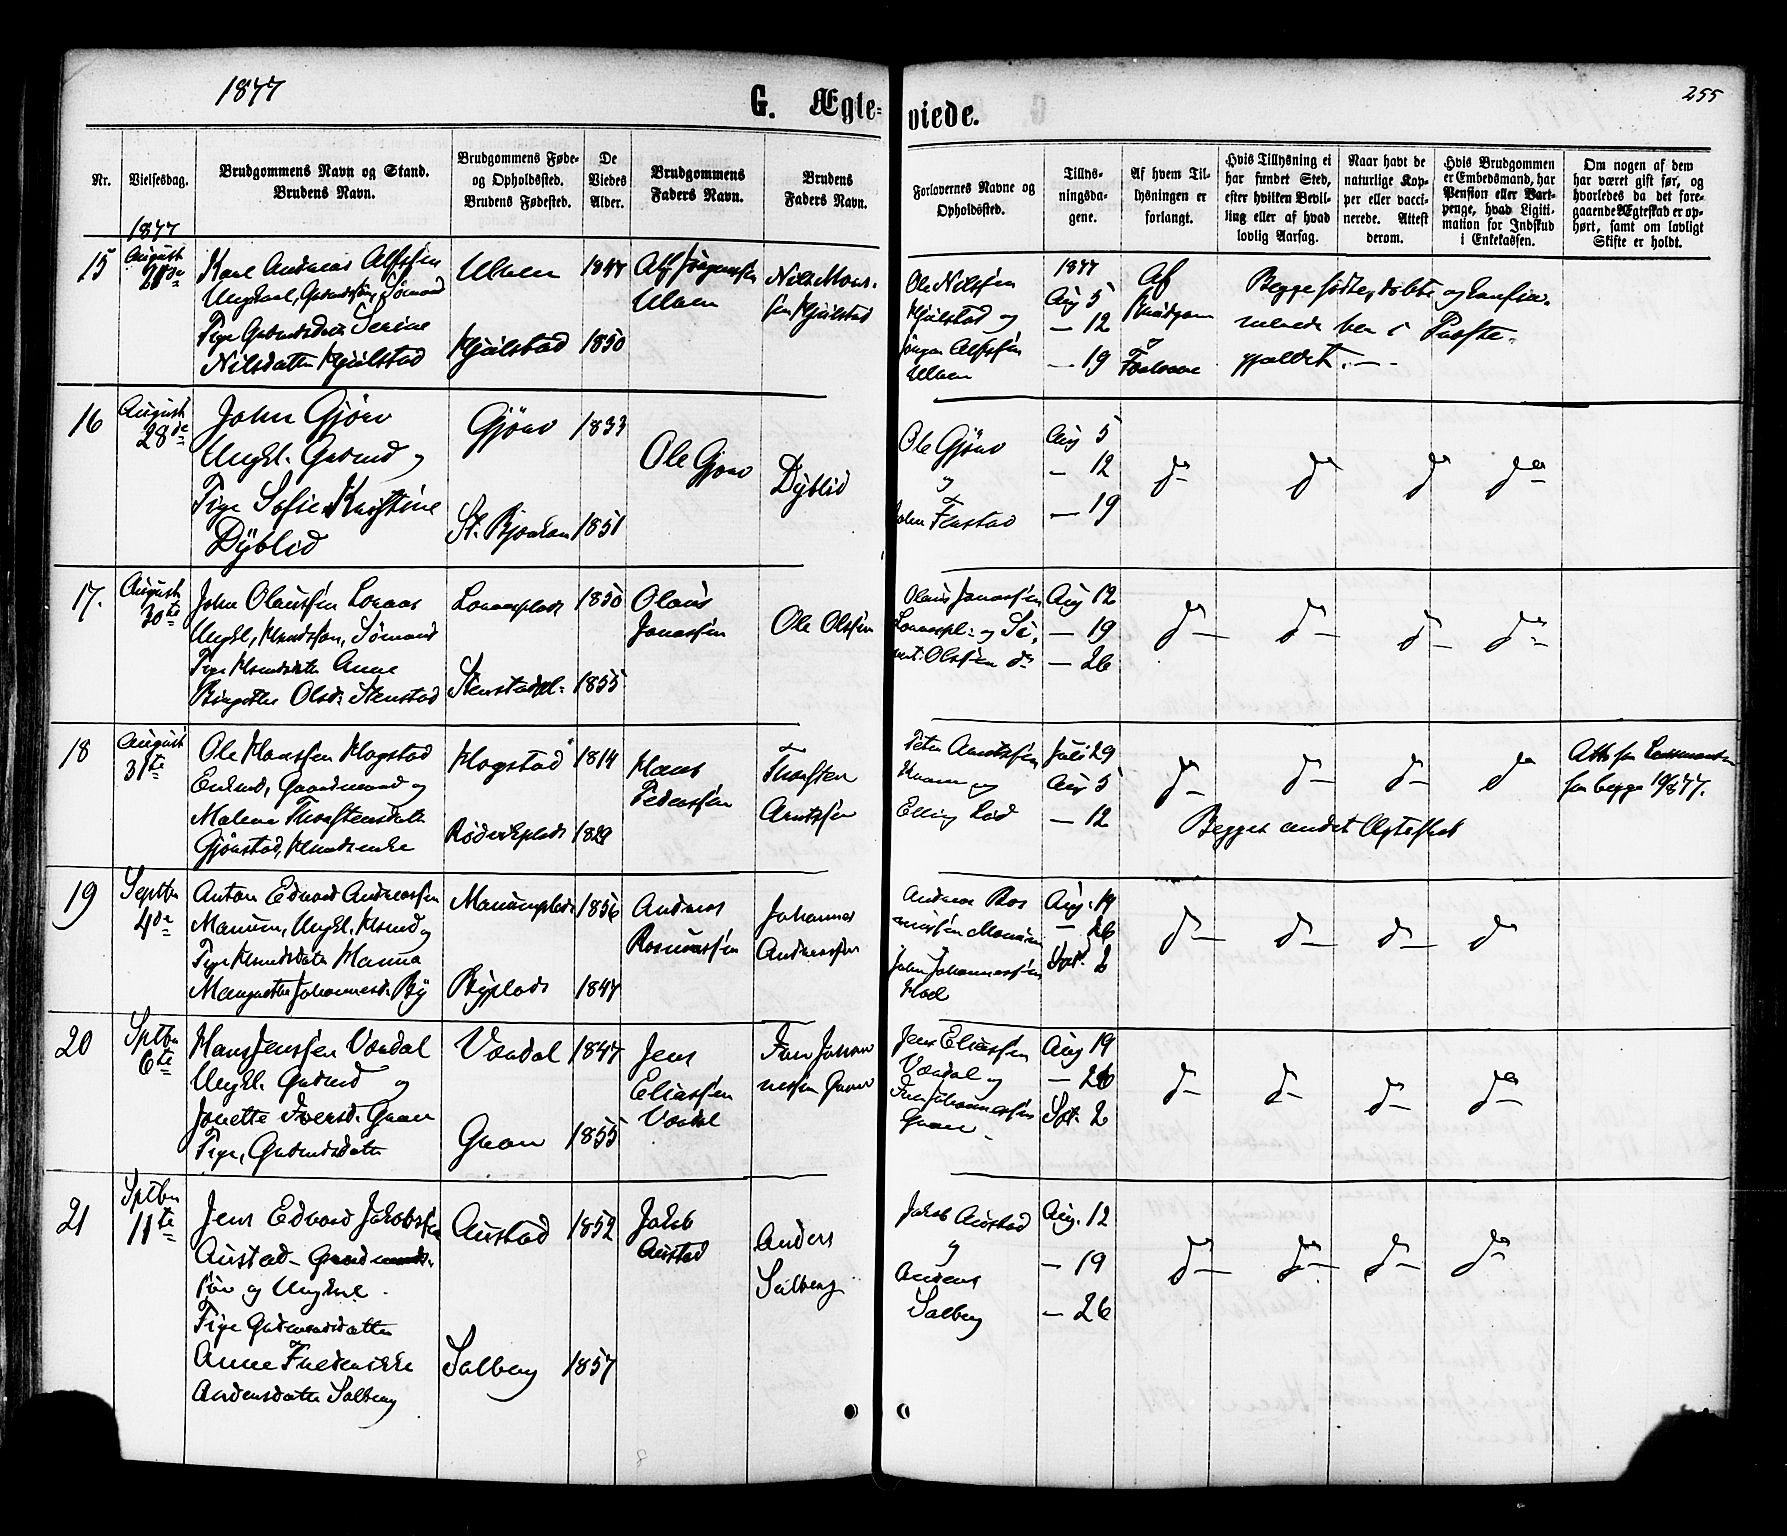 1877
G. Ægte=
viede.
255
Nr.
Vielsesdag.
Brudgommens Navn og Stand.
Brudens Navn.
Brudgommens Føde-
og Opholdssted.
Brudens Fødested.
De
Viedes
Alder.
Brudgommens
Faders Navn.
Brudens
Faders Navn.
Forlovernes Navne og
Opholdssted.
Tillys-
ningsda-
gene.
Af hvem Til-
lysningen er
forlangt.
Hvis Tillysning ei
har fundet Sted,
efter hvilken Bevil-
ling eller af hvad
lovlig Aarsag.
Naar havt de
naturlige Kop-
per eller vacci-
nerede. Attest
derom.
Hvis Brudgommen
er Embedsmand, har
Pension eller Vart-
penge, hvad Ligiti-
mation for Indskud
i Enkekassen.
Om nogen af dem
har været gift før, og
hvorledes da det fore-
gaaende Ægteskab er op-
hørt, samt om lovligt
Skifte er holdt.
1877
15
August
21de
Karl Andreas Alfsen
Ungkarl, Gaardssøn, Sømand
Pige Gaardsdatter Serine
Nilsdatter Hjulstad
Ulven
Hjulstad
1847
1850
Alf Jörgenssen
Ulven
Nils Mons-
sen Hjulstad
Ole Nilssen
Hjulstad og
Jörgen Alfssen
Ulven
1877
Aug 5
— 12
— 19
Af
Brudgom
og
Forlovere
Begge fødte, døbte og konfir-
merede her i Præste-
gjældet.—
16
August
28de
John Gjörv
Ungk. Gaardmd og
Pige Sofie Kristine
Dÿblid
Gjörv
St. Bjerkan
1833
1851
Ole Gjörv
Dÿblid
Ole Gjörv
og
John Flastad
Aug 5
— 12
— 19
do
do
do
do
17.
August
30te
John Olaussen Loraas
Ungk., Husmdssøn, Sømand
Pige Husmdsdatter Anne
Birgitte Olsd: Stenstad
Loraasplads
Stenstadpl:
1850
1855
Olaus
Jonassen
Ole Olssen
Olaus Jonassen
Loraaspl: og Si-
vert Olssen do
Aug 12
— 19
— 26
do
do
do
do
18
August
31te
Ole Hanssen Hogstad
Enkemd, Gaardmand og
Malena Thorstensdatter
Gjörstad, Husmdsenke
Hogstad
Røderikplads
1814
1829
Hans
Pederssen
Thorsten
Arntssen
Peter Arntssen
og
Elling Lød
Juli 29
Aug 5
— 12
do
do
do
do
Begges andet Ægteskab
Att. fra Lensmanden
for begge 10/8 77.
19
Septbr
4de
Anton Edvard Andreassen
Manum, Ungk. Husmd og
Pige Husmdsdatter Hanna
Margrethe Johannesd. Bÿ
Manumplads
Bÿplads
1856
1847
Andreas
Rasmussen
Johannes
Andreassen
Andreas Ras
mussen Manum
og
John Johannessen
Hoel
Aug. 19
— 26
Spt. 2
do
do
do
do
20
Sptbr
6te
Hans Jenssen Værdal
Ungk. Gaardmd og
Jonette Iversd. Gran
Pige, Gaardmdsdatter
Værdal
Gran
1847
1855
Jens
Eliassen
Værdal
Iver Johan
nessen Gran
Jens Eliassen
Værdal og
Iver Johannessen
Gran
Aug 19
— 26
Spt. 2
do
do
do
do
21
Sptbr
11te
Jens Edvard Jakobssen
Austad - Gaardmands-
søn og Ungkarl.
Pige Gaardmandsdatter
Anne Frederikke
Andersdatter Salberg
Austad
Salberg
1852
1857
Jakob
Austad
Anders
Salberg
Jakob Austad
og
Anders
Salberg
Aug. 12
— 19
— 26
do
do
do
do
8